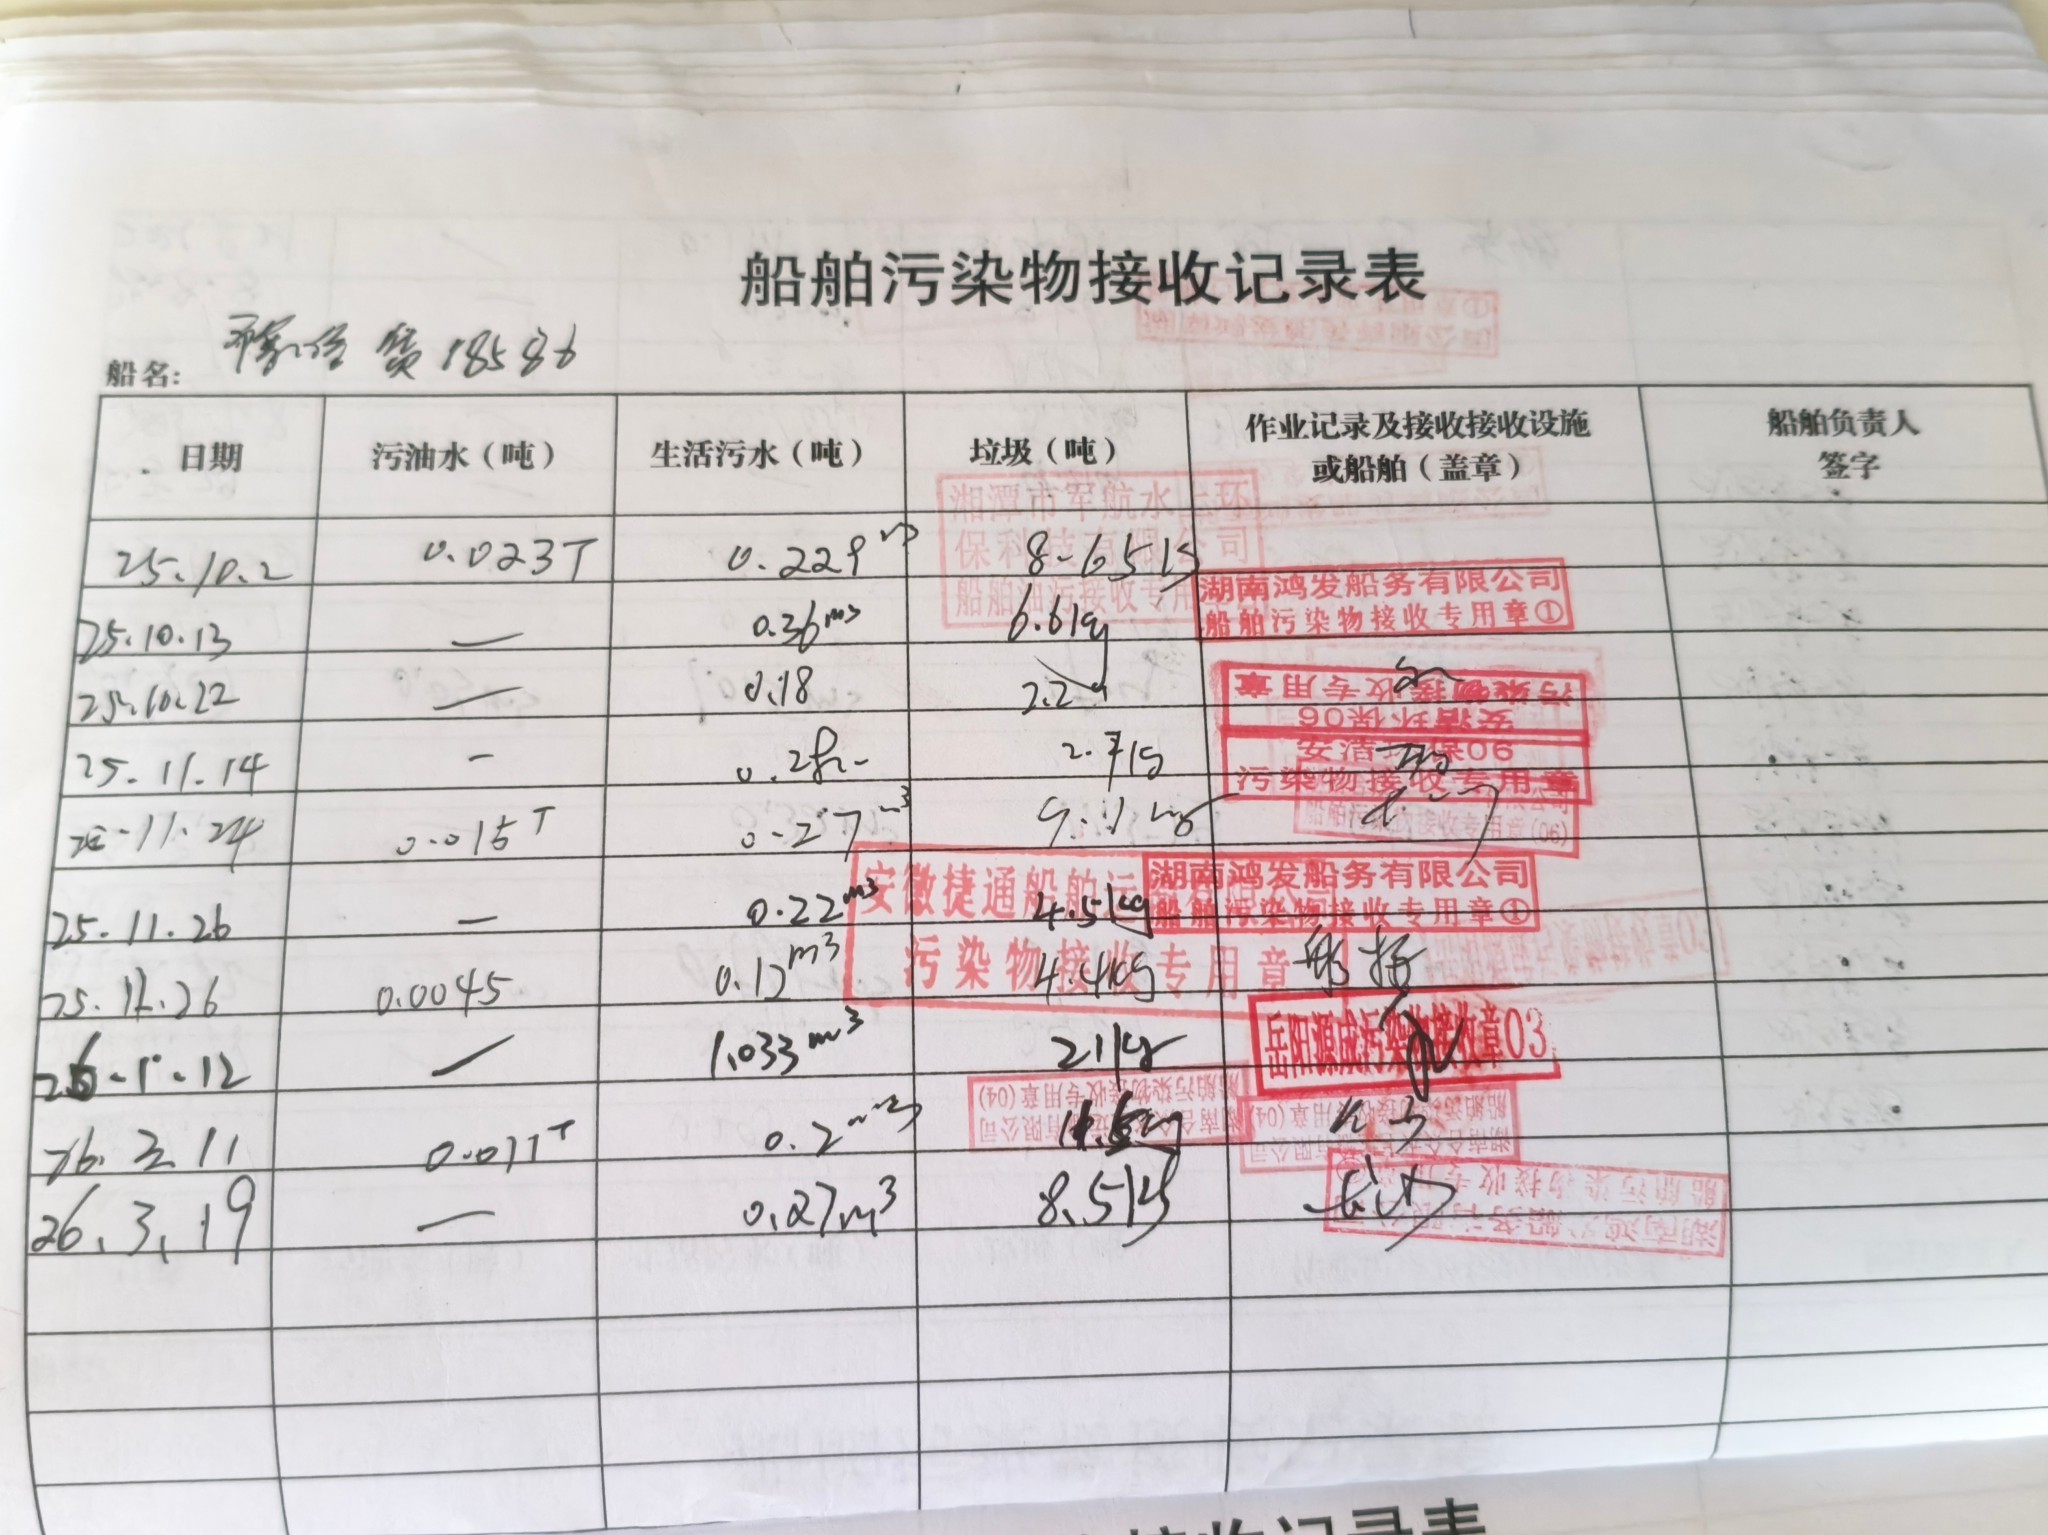 船舶污染物接收记录表
船名： 18586
日期 污油水（吨） 生活污水（吨） 垃圾（吨） 作业记录及接收接收设施或船舶（盖章） 船舶负责人签字
湘潭市军航水上环
保科技有限公司
船舶油污接收专用章
25.10.2 0.023T 0.229m3 8.65kg
湖南鸿发船务有限公司
船舶污染物接收专用章①
25.10.13 — 0.36m3 6.6kg
25.10.22 — 0.18
污染物接收专用章
安清环保06
25.11.14 -
安清环保06
污染物接收专用章
11.24 0.015T 0.27m3
船舶污染物接收专用章(06)
安徽捷通船舶运
污染物接收专用章
湖南鸿发船务有限公司
船舶污染物接收专用章①
25.11.26 — 0.22m3 4.5kg
26 0.0045 0.12m3 4.4kg
岳阳源成污染物接收章03
26.1.12 — 1.033m3 21kg
船舶污染物接收专用章(04)
有限公司
船舶污染物接收专用章(04)
有限公司
11 0.011T 0.2m3
26.3.19 — 0.27m3 8.5kg
船舶污染物接收专用章
接收记录表